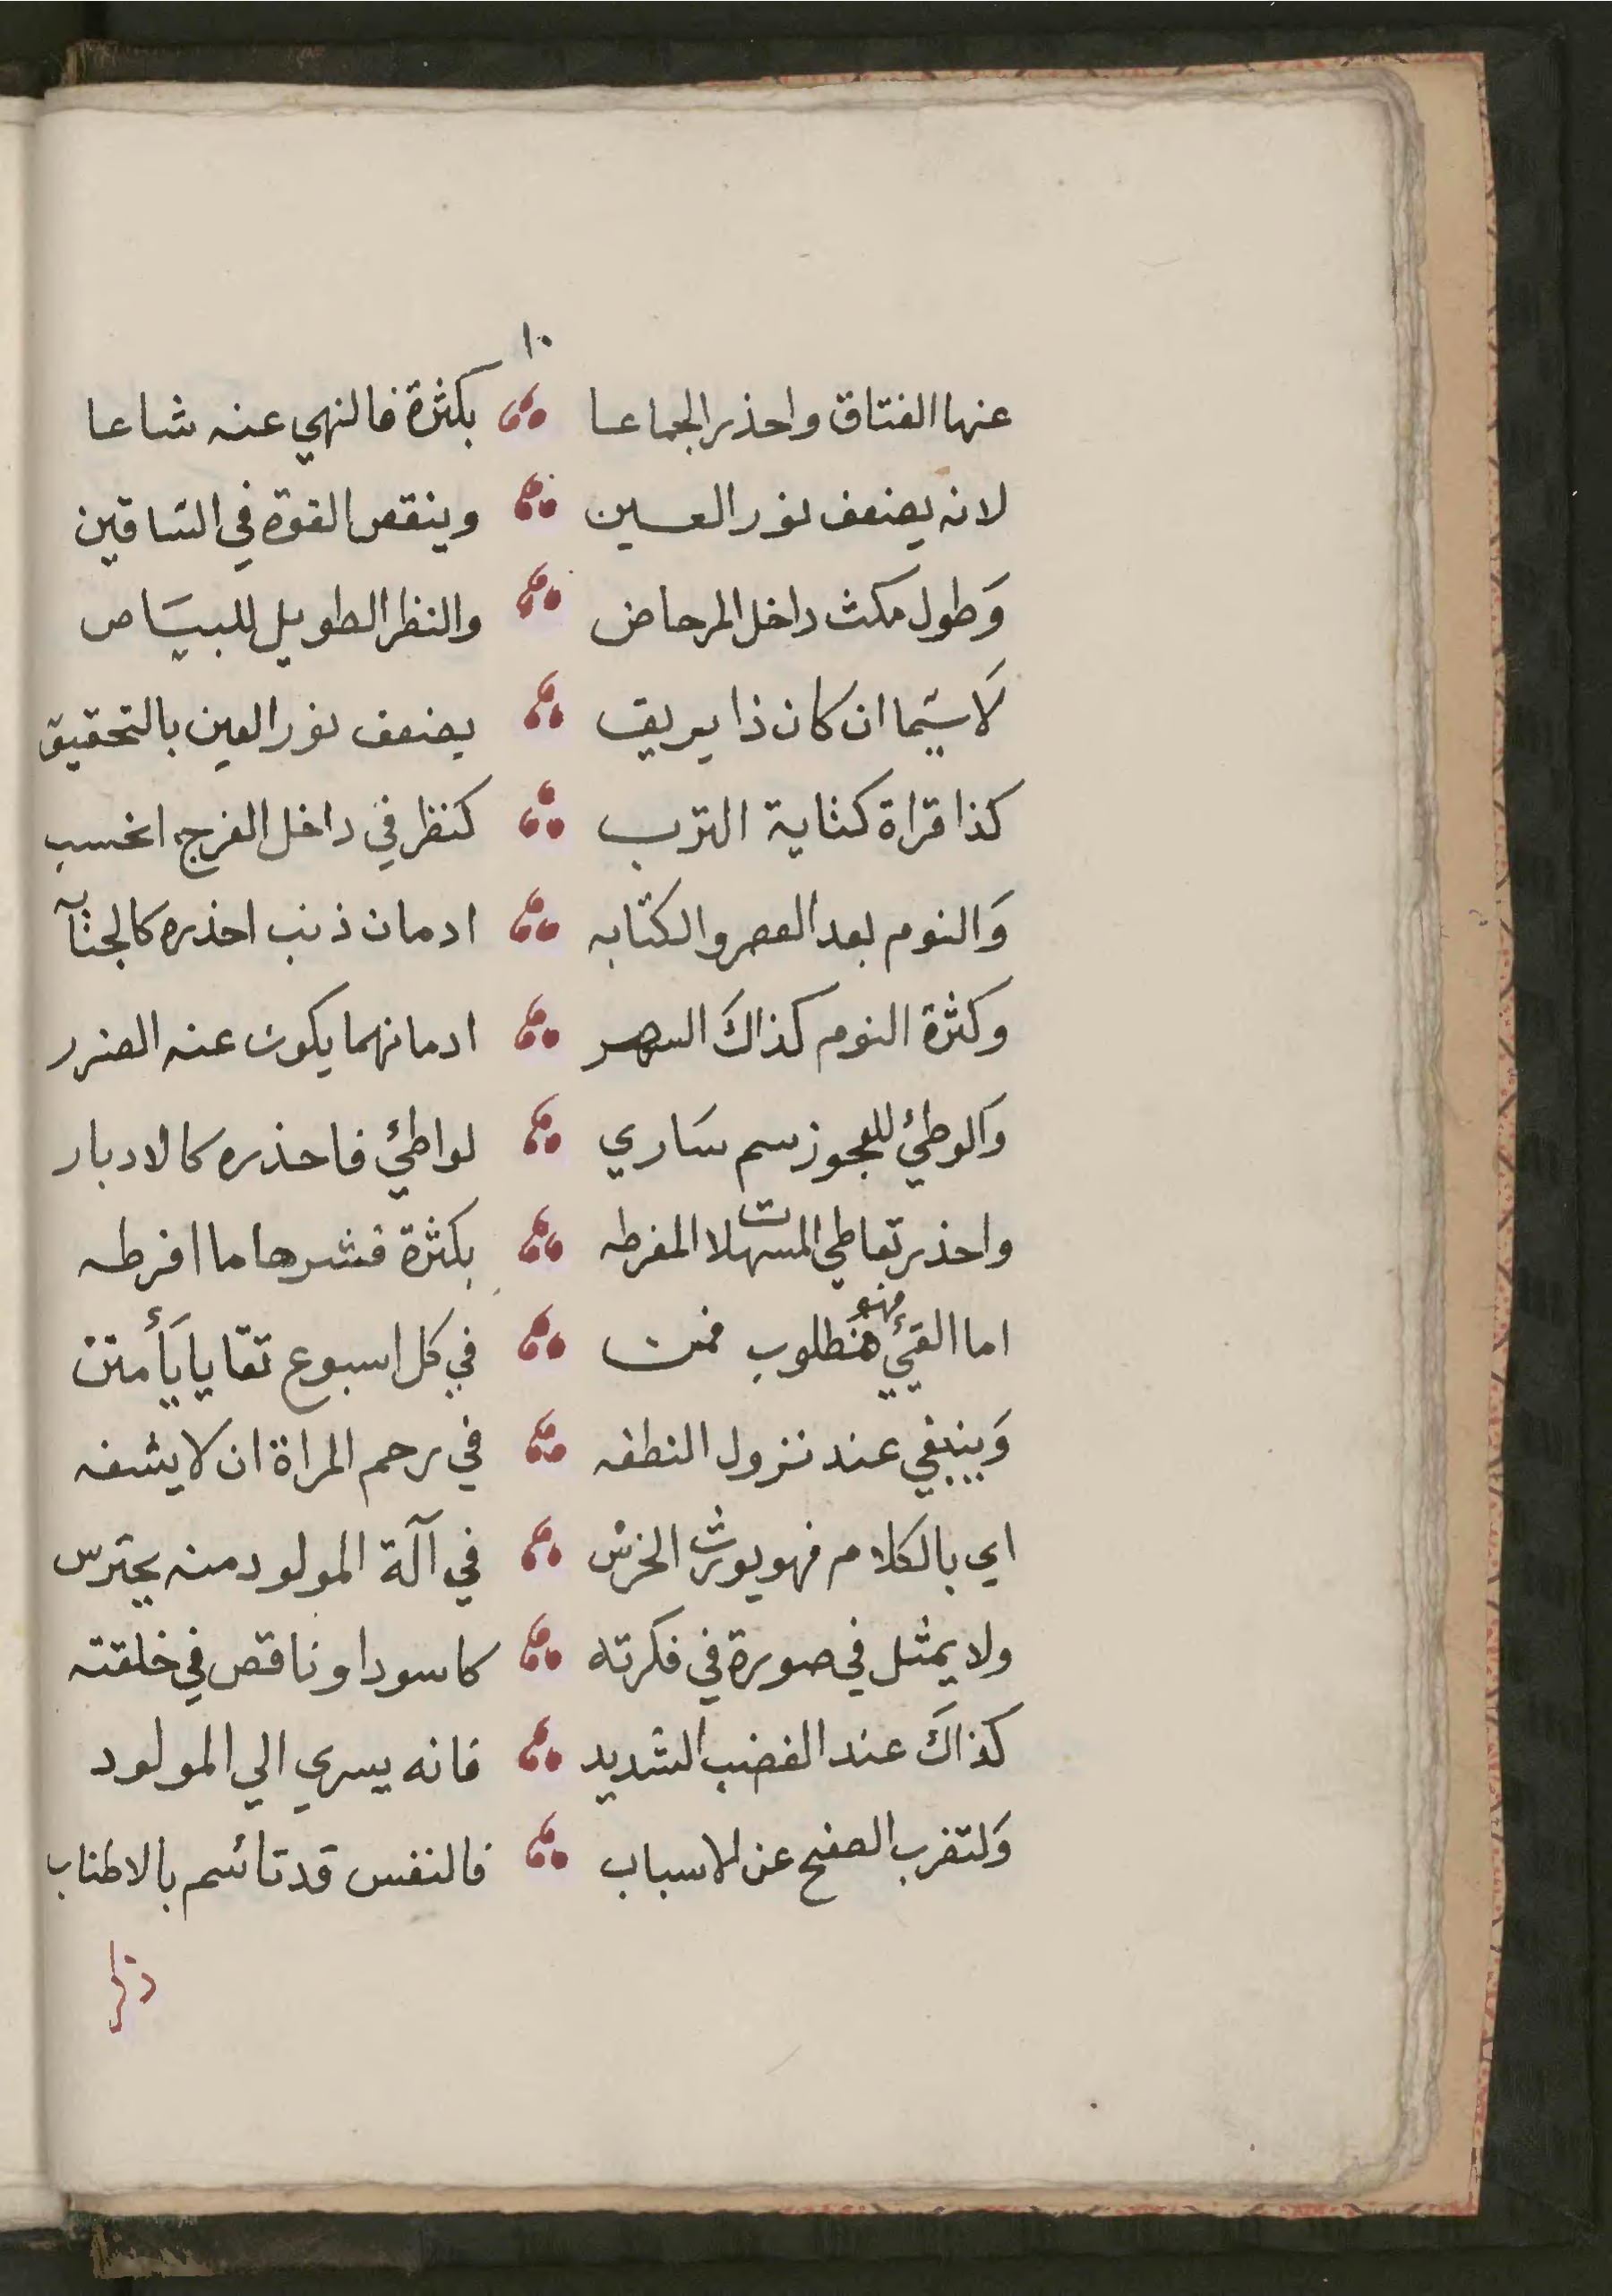 ١٠
عنها الفتاق واحذر الجماعا بكثرة فالنهي عنه شاعا
لانه يضعف نور العين وينقص القوة في السّاقين
وَطول مكث داخل المرحاض والنظر الطويل للبيَاض
لَاسيّما ان كان ذا بريق يضعف نور العين بالتحقيق
كذا قراة كتابة الترب كنظر في داخل الفرج احسب
وَالنوم بعد العصر والكتابه ادمان ذنب احذره كالجنآبه
وكثرة النوم كذاكَ السهر ادمانهما يكون عنه الضرر
وَالوطئ للعجوز سم سَاري لواطئ فاحذره كالادبار
واحذر تعاطي المسهلات المفرطه بكثرة فشرها ما افرطه
اما القيئ فهو مطلوب فمن في كل اسبوع تقّايا يَأمنن
وَينبغي عند نزول النطفه في رحم المراة ان لا يشفه
اي بالكلام فهو يورث الخرسْ في آلة المولود منه يحترس
ولا يمثل في صورة في فكرته كاسود او ناقص في خلقته
كذاكَ عند الغضب الشديد فانه يسري الي المولود
وَلتضرب الصفح عن الاسباب فالنفس قد تائسم بالاطناب
ذكر